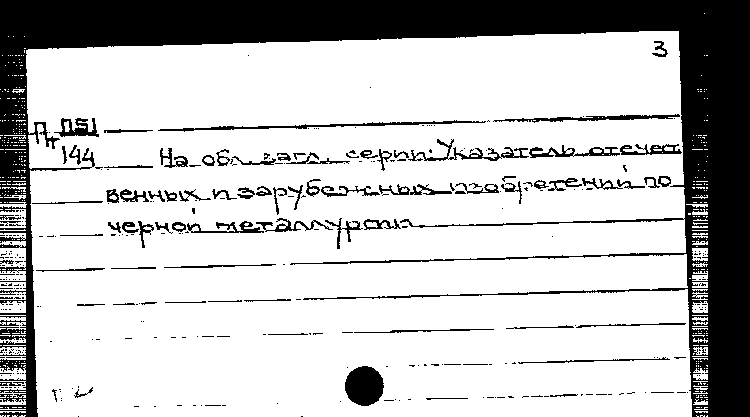 3
Пт П51
144 На обл. загл. серии: Указатель отечест
венных и зарубежных изобретений по
черной металлургии.